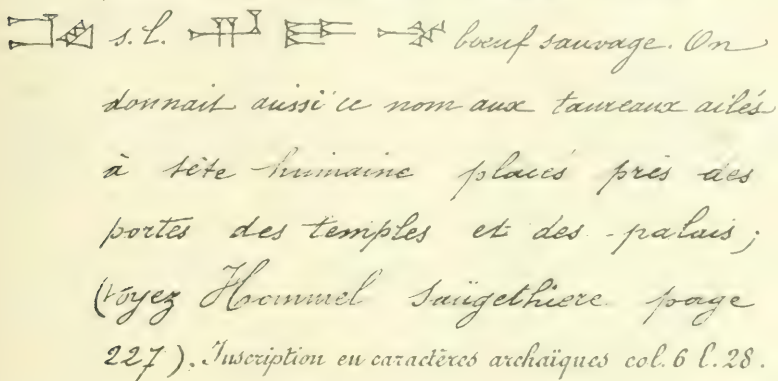 s. l. bœuf sauvage. On
donnait aussi ce nom aux taureaux ailés
à tête humaine placés près des
portes des temples et des palais;
(voyez Hommel Saügethiere page
227). Inscription en caractères archaïques col. 6 l. 28.